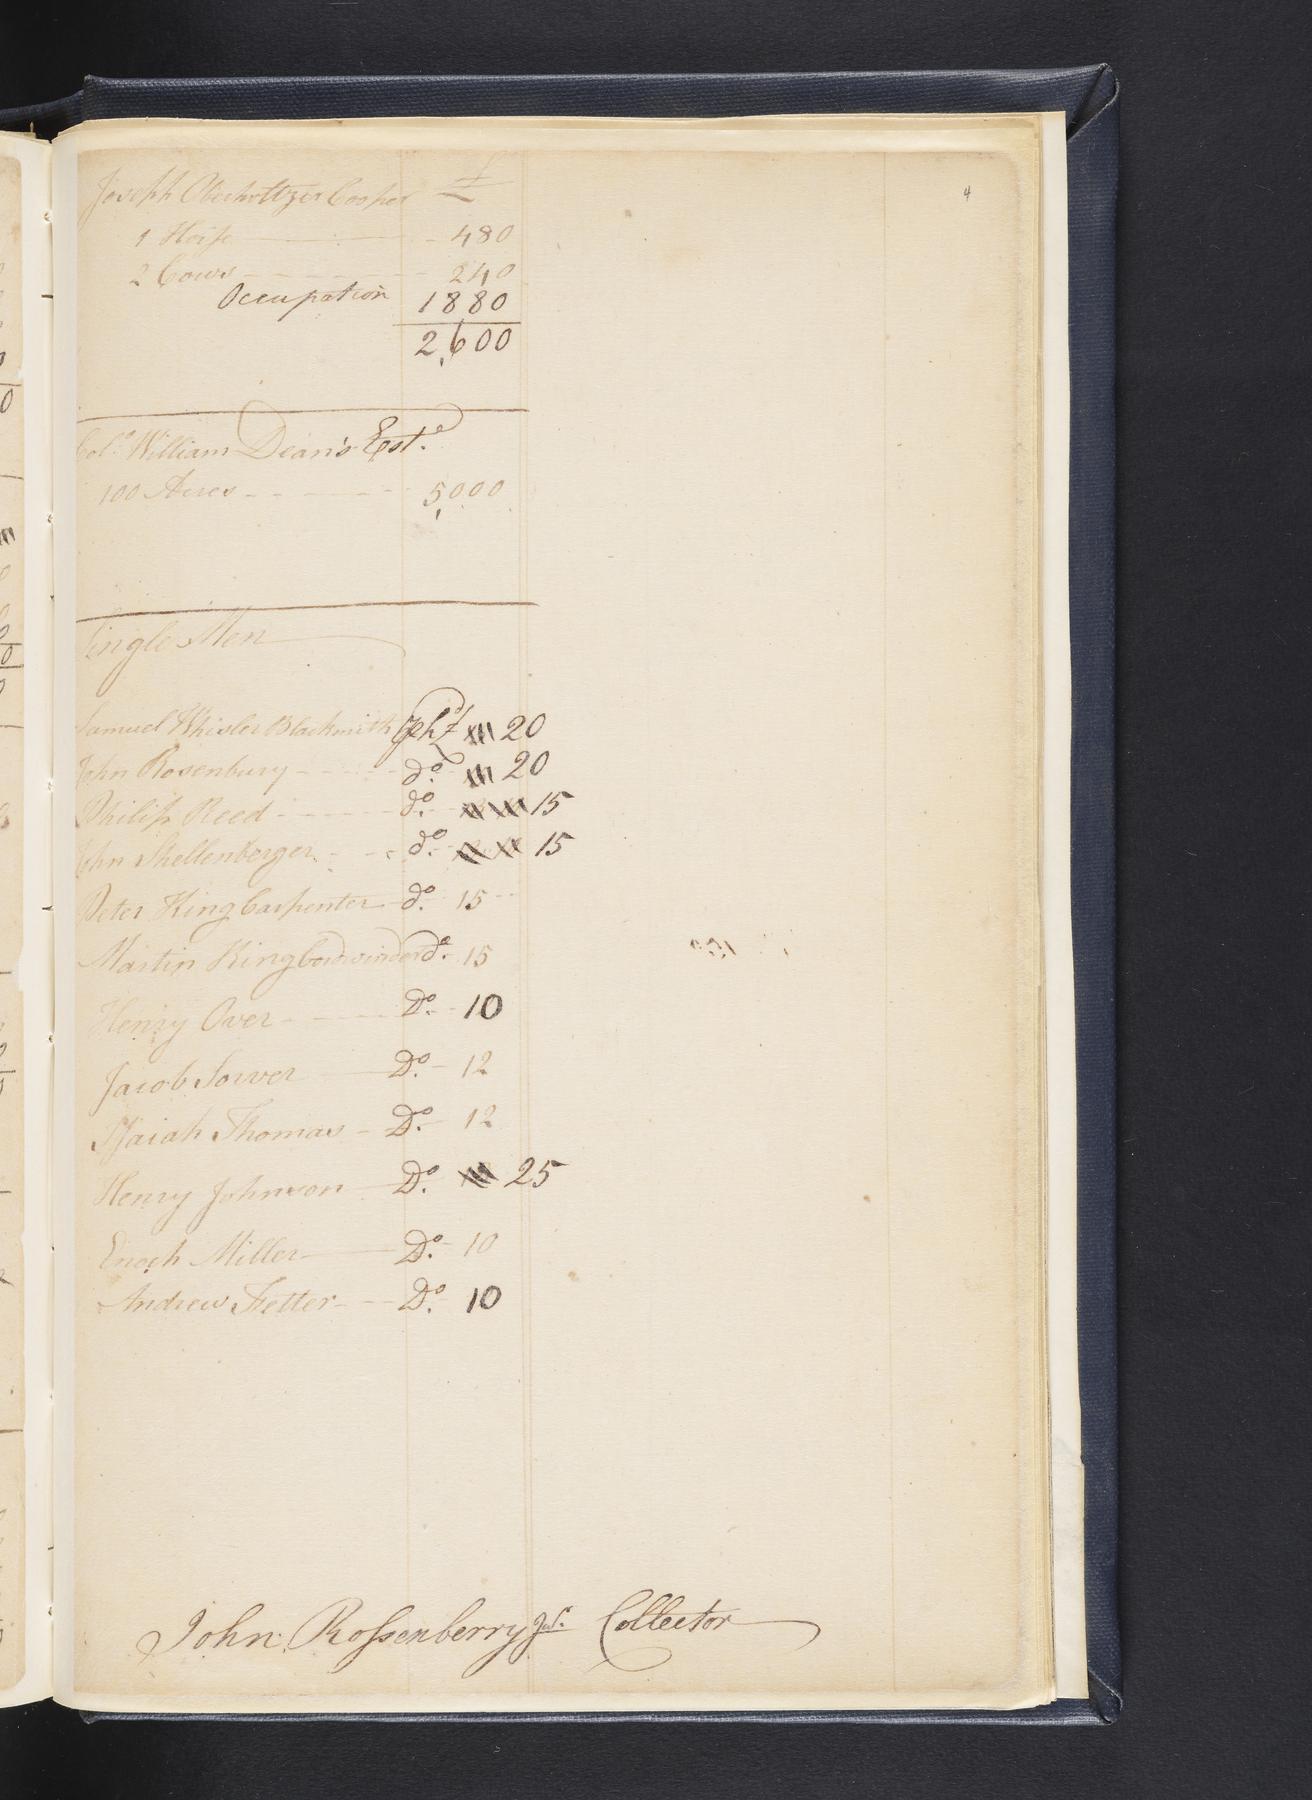 4
Joseph Oberholtzer Cooper £
1 Horse 480
2 Cows 240
Occupation 1880
2,600
Col.º William Dean's Est.e
100 Acres 5,000
Single Men
Samuel Whisler Blacksmith £ 20
John Rosenbury dº 20
Philip Reed dº 15
John Shellenberger dº 15
Peter King Carpenter dº 15
Martin King Cordwinder dº 15
Henry Over Dº 10
Jacob Sorver Dº 12
Isaiah Thomas Dº 12
Henry Johnson Dº 25
Enoch Miller Dº 10
Andrew Fetter Dº 10
John Rossenberry Junr. Collector